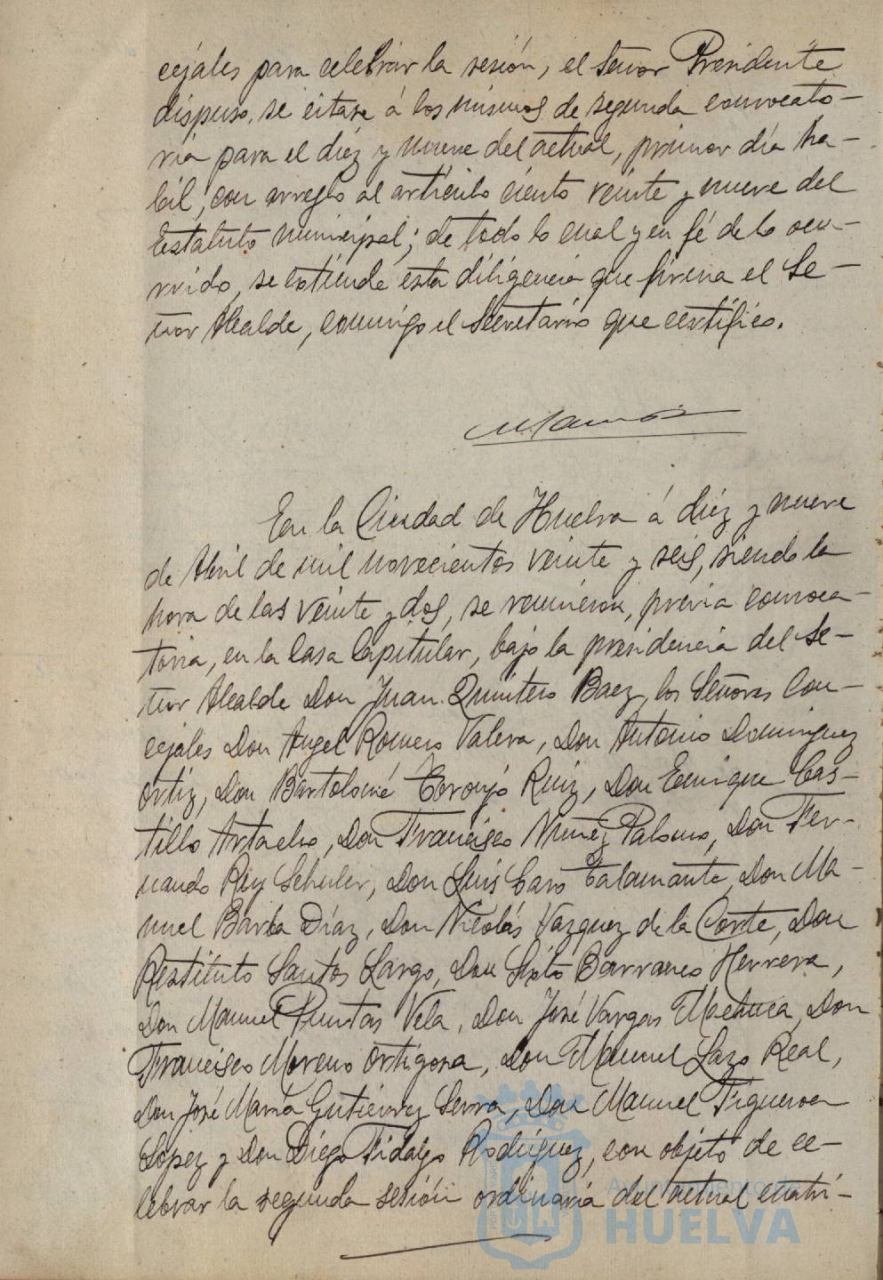 cejales para celebrar la sesión, el Señor Presidente
dispuso, se citase á los mismos de segunda convocato-
ria para el diéz y nueve del actual, primer día há-
bil, con arreglo al artículo ciento veinte y nueve del
Estatuto municipal; de todo lo cual y en fé de lo ocu-
rrido, se extiende esta diligencia que firma el Se-
ñor Alcalde, conmigo el Secretario que certifico.
En la Ciudad de Huelva á diéz y nueve
de Abril de mil novecientos veinte y seis, siendo la
hora de las veinte y dos, se reunieron, prévia convoca-
toria, en la Casa Capitular, bajo la presidencia del Se-
ñor Alcalde Don Juan Quintero Baez, los Señores Con-
cejales Don Angel Romero Valera, Don Antonio Dominguez
Ortiz, Don Bartolomé Toronjo Ruiz, Don Enrique Cas-
tillo Artacho, Don Francisco Nuñez Palomo, Don Fer-
nando Rey Schuler, Don Luis Caro Talamante, Don Ma-
nuel Barba Díaz, Don Nicolás Vázquez de la Corte, Don
Restituto Santos Largo, Don Sixto Barranco Herrera,
Don Manuel Puntas Vela, Don José Vargas Machuca, Don
Francisco Moreno Ortigosa, Don Manuel Lazo Real,
Don José María Gutiérrez Serra, Don Manuel Figueroa
López y Don Diego Fidalgo Rodríguez, con objeto de ce-
lebrar la segunda sesión ordinaria del actual cuatri-
Ayuntamiento de
HUELVA